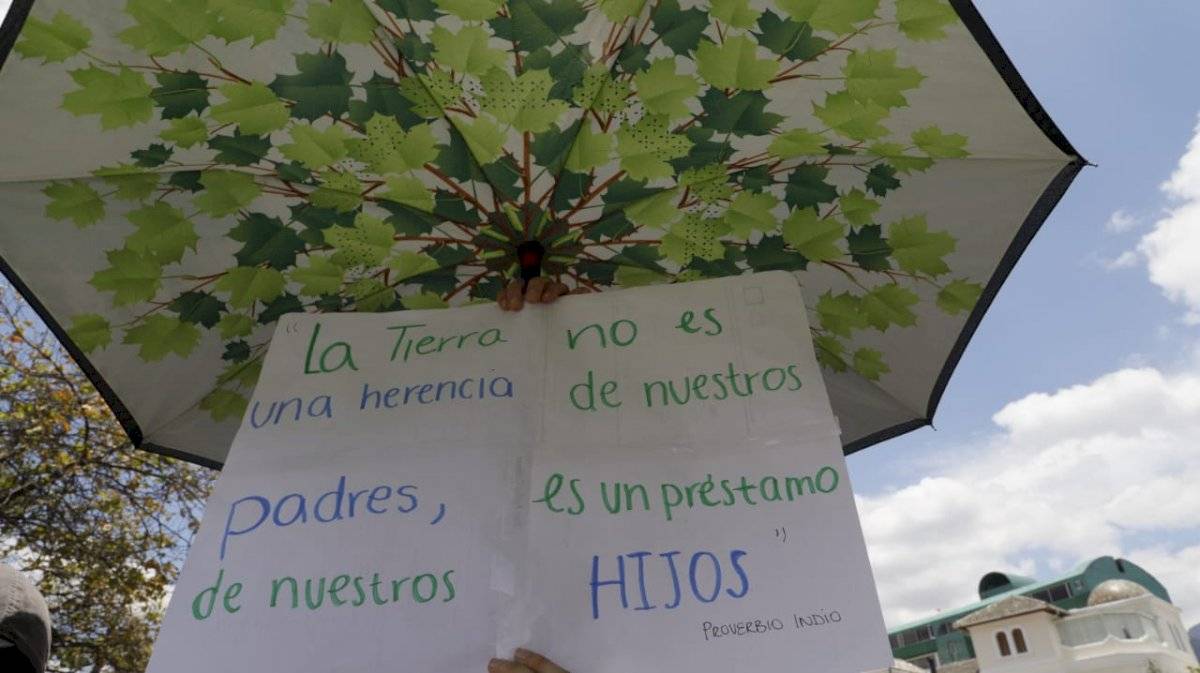 “La Tierra no es
una herencia de nuestros
padres, es un préstamo
de nuestros HIJOS”
PROVERBIO INDIO